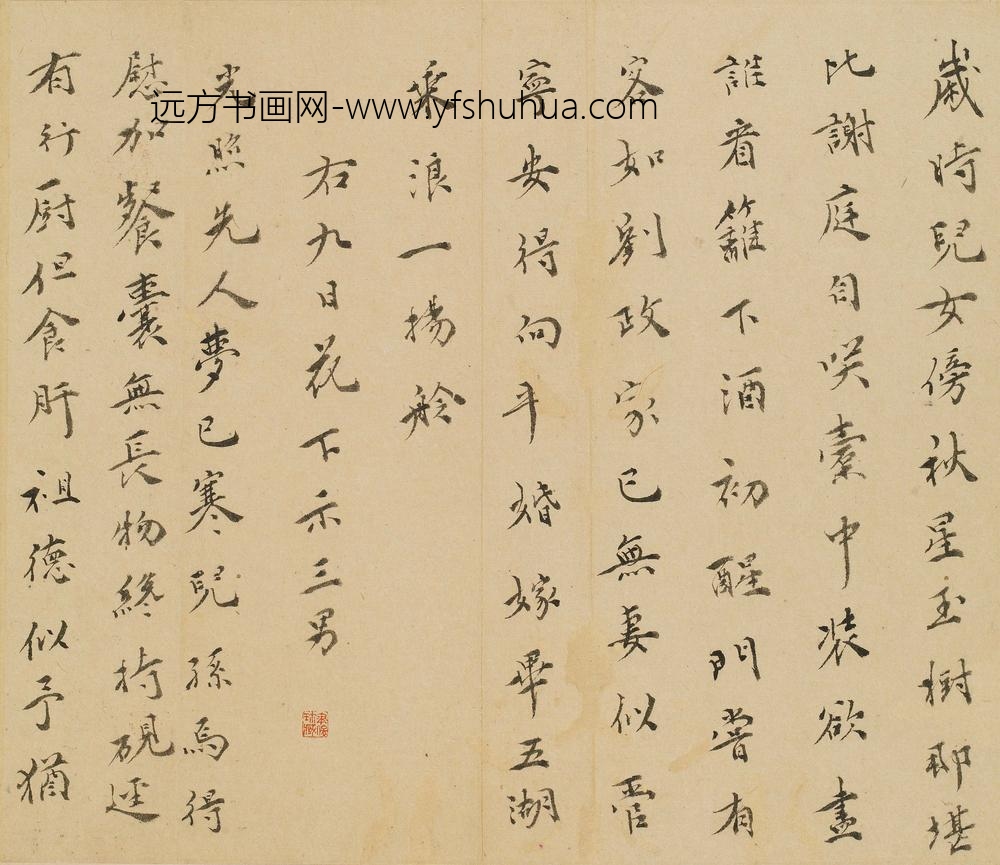 歲時兒女傍秋星玉樹那堪
比謝庭自咲橐中装欲盡
誰看籬下酒初醒門嘗有
客如劉政家已無妻似管
寧安得向平婚嫁畢五湖
乘浪一揚舲
右九日花下示三男
光照先人夢已寒兒孫焉得
慰加餐囊無長物終持硯遅
有行厨但食肝祖德似予猶
远方书画网-www.yfshuhua.com